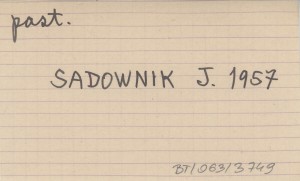 past.
SADOWNIK J. 1957
BT/063/3749